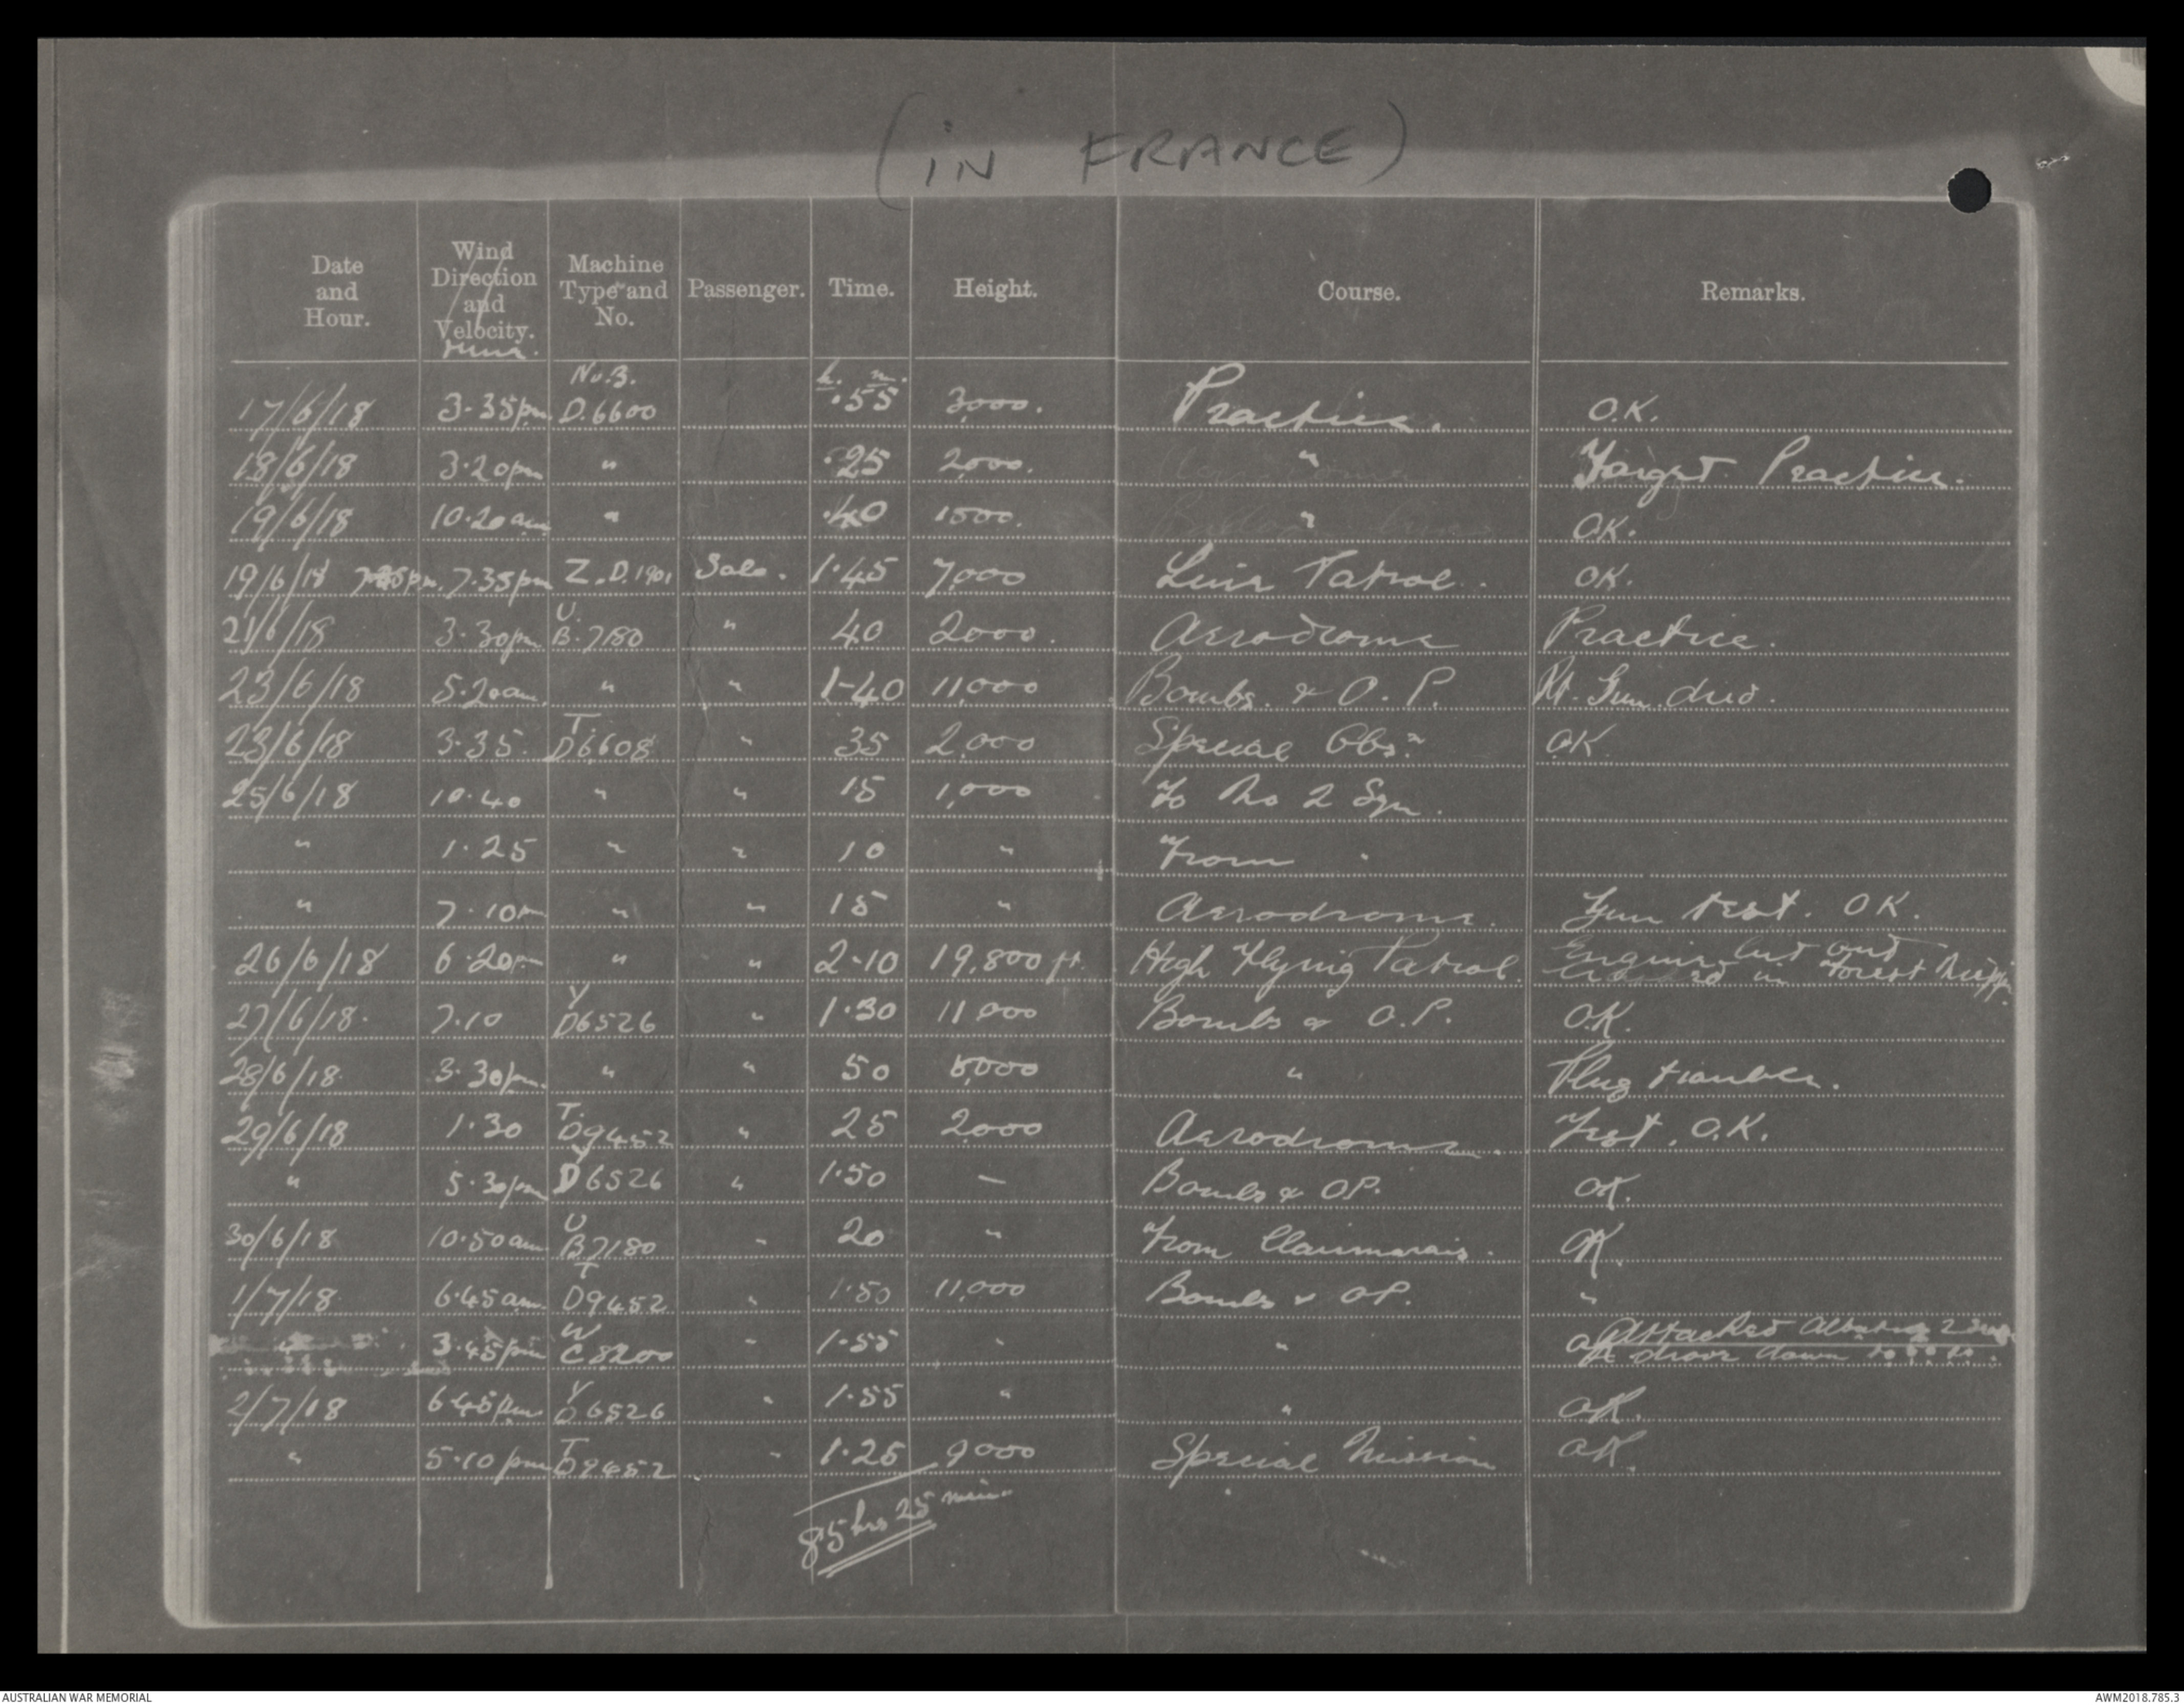 (IN FRANCE)
Date and Hour. Wind Direction and Velocity. Machine Type and No. Passenger. Time. Height. Course. Remarks.
No.3. h. m.
17/6/18 3.35pm. D.6600 .55 3000. Practice. O.K.
18/6/18 3.20pm " .25 2000. " Target Practice.
19/6/18 10.20am " .40 1500. " OK.
19/6/18 7.35pm Z.D.1901 Sale. 1.45 7,000 Line Patrol. OK.
21/6/18 3.30pm U. B.7180 " 40 2000. Aerodrome Practice.
23/6/18 5.20am. " " 1-40 11,000 Bombs. & O.P. Rt. Gun dud.
23/6/18 3.35. T. D6608 " 35 2,000 Special Obsn OK
25/6/18 10.40 " " 15 1,000 To No 2 Sqn.
" 1.25 " " 10 " From "
" 7.10pm " " 15 " Aerodrome. Gun test. OK.
26/6/18 6.20pm " " 2-10 19,800 ft. High Flying Patrol. Engine cut out
landed in Forest Nieppe
27/6/18. 7.10 Y D6526 " 1.30 11000 Bombs & O.P. O.K.
28/6/18 3.30pm. " " 50 8,000 " Plug trouble.
29/6/18 1.30 T. D9452 " 25 2,000 Aerodrome. Test. O.K.
" 5.30pm Y D6526 " 1.50 — Bombs & OP. OK.
30/6/18 10.50am U B7180 " 20 " From Clairmarais. OK
1/7/18. 6.45am. T D9452 " 1.50 11,000 Bombs & OP. "
" 3.45pm W C8200 " 1.55 " " OK Attacked Albatros
drove down to
2/7/18 6.45pm Y D6526 " 1.55 " " OK.
" 5.10pm T D9452 " 1.25 9000 Special Mission OK.
85 hrs 25 min.
AUSTRALIAN WAR MEMORIAL
AWM2018.785.3